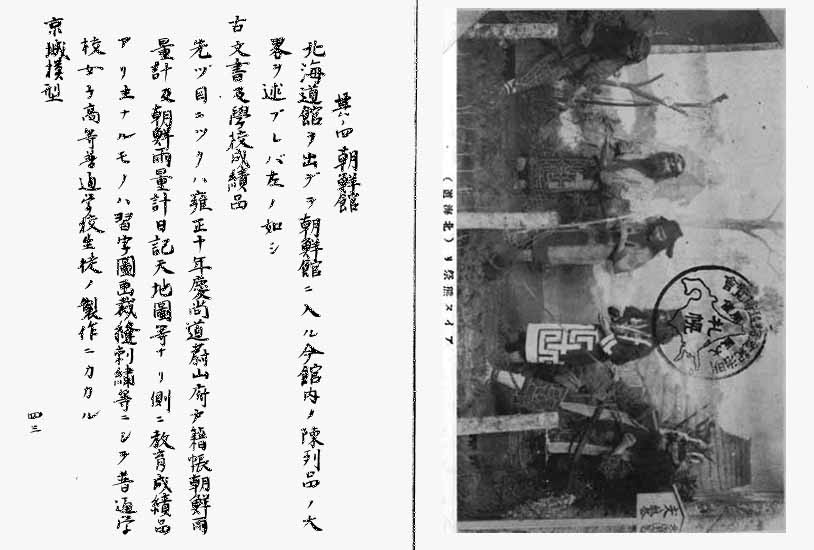 其ノ四 朝鮮館
北海道館ヲ出デヲ朝鮮館ニ入ル今館内ノ陳列品ノ大
畧ヲ述ブレバ左ノ如シ
古文書及學校成績品
先ヅ目ニツクハ雍正十年慶尚道蔚山府戸籍帳朝鮮雨
量計及朝鮮雨量計日記天地圖等ナリ側ニ教育成績品
アリ主ナルモノハ習字圖画裁縫刺繍等ニシテ普通学
校女子高等普通学校生徒ノ製作ニカカル
京城模型
四三
(道海北) リ祭熊ヌイア
札幌